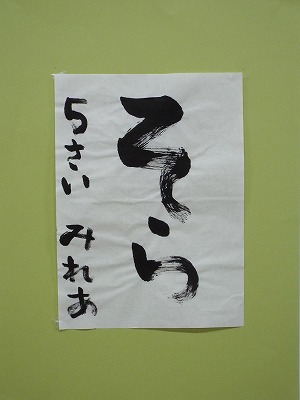 そら
5さい みれあ